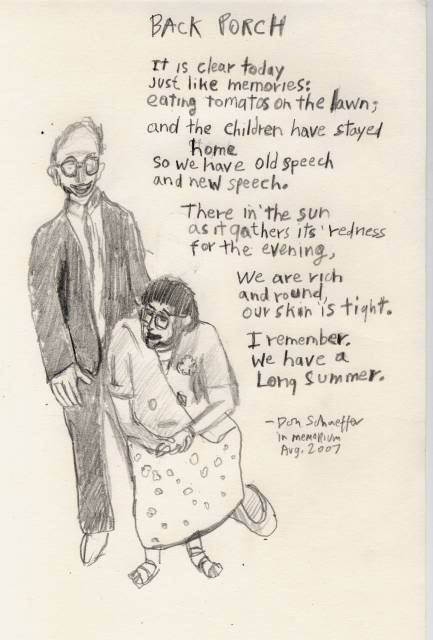 BACK PORCH
It is clear today
just like memories:
eating tomatos on the lawn;
and the children have stayed
home
so we have old speech
and new speech.
There in the sun
as it gathers its' redness
for the evening,
We are rich
and round,
our skin is tight.
I remember.
We have a
Long Summer.
- Don Schaeffer
in memorium
Aug. 2007